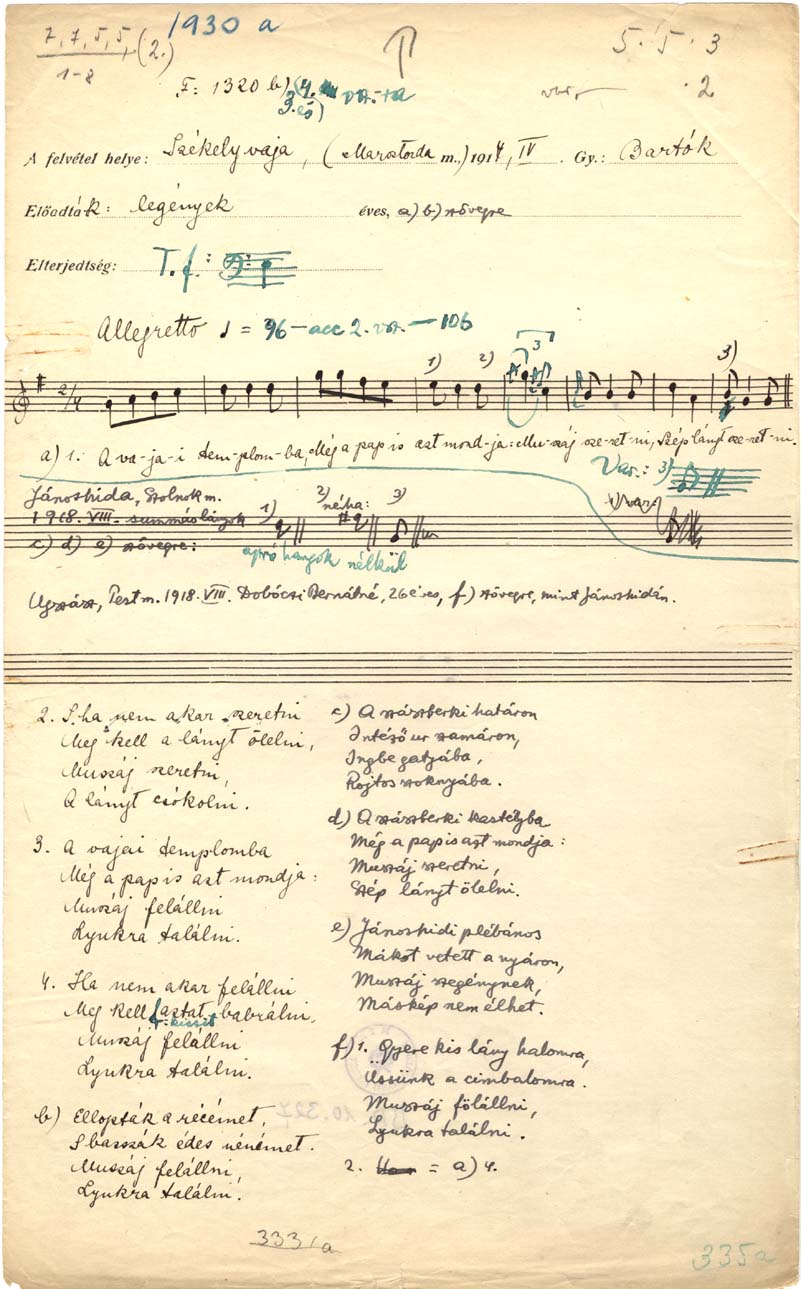 7, 7, 5, 5, (2.) 1930 a 5 · 5 · 3
1-8
var. · 2
F: 1320 b) (4. vsz.-ra
3. és)
A felvétel helye: Székelyvaja, (Marostorda m.,) 1914, IV. Gy.: Bartók
Előadták: legények éves, a) b) szövegre
Elterjedtség: T. f.:
Allegretto ♩ = 96 – acc 2. vsz. — 106
3
1) 2) 3)
2/4
a) 1. A va-ja-i tem-plom-ba, Még a pap is azt mond-ja: Mu-száj sze-ret-ni, Szép lányt sze-ret-ni.
Var.: 3)
Jánoshida, Szolnok m.
1918. VIII. summáslányok 1) 2) néha: 3) var.
c) d) e) szövegre:
apró hangok nélkül
Ugyszász, Pest m. 1918. VIII. Dobóczi Bernátné, 26 éves, f) szövegre, mint Jánoshidán.
2. S ha nem akar szeretni
Meg kell a lányt ölelni,
Muszáj szeretni,
A lányt csókolni.
3. A vajai templomba
Még a pap is azt mondja:
Muszáj felállni
Lyukra találni.
4. Ha nem akar felállni
Meg kell aztat babrálni,
f. kicsit
Muszáj felállni
Lyukra találni.
b) Ellopták a récémet,
S basszák édes nénémet.
Muszáj felállni,
Lyukra találni.
c) A szászberki határon
Intéző ur szamáron,
Ingbe gatyába,
Rojtos szoknyába.
d) A szászberki kastélyba
Még a pap is azt mondja:
Muszáj szeretni,
Szép lányt ölelni.
e) Jánoshidi plébános
Mákot vetett a nyáron,
Muszáj szegénynek,
Máskép nem élhet.
f) 1. Gyere kis lány halomra,
Üssünk a cimbalomra.
Muszáj fölállni,
Lyukra találni.
2. = a) 4.
333/a
335a